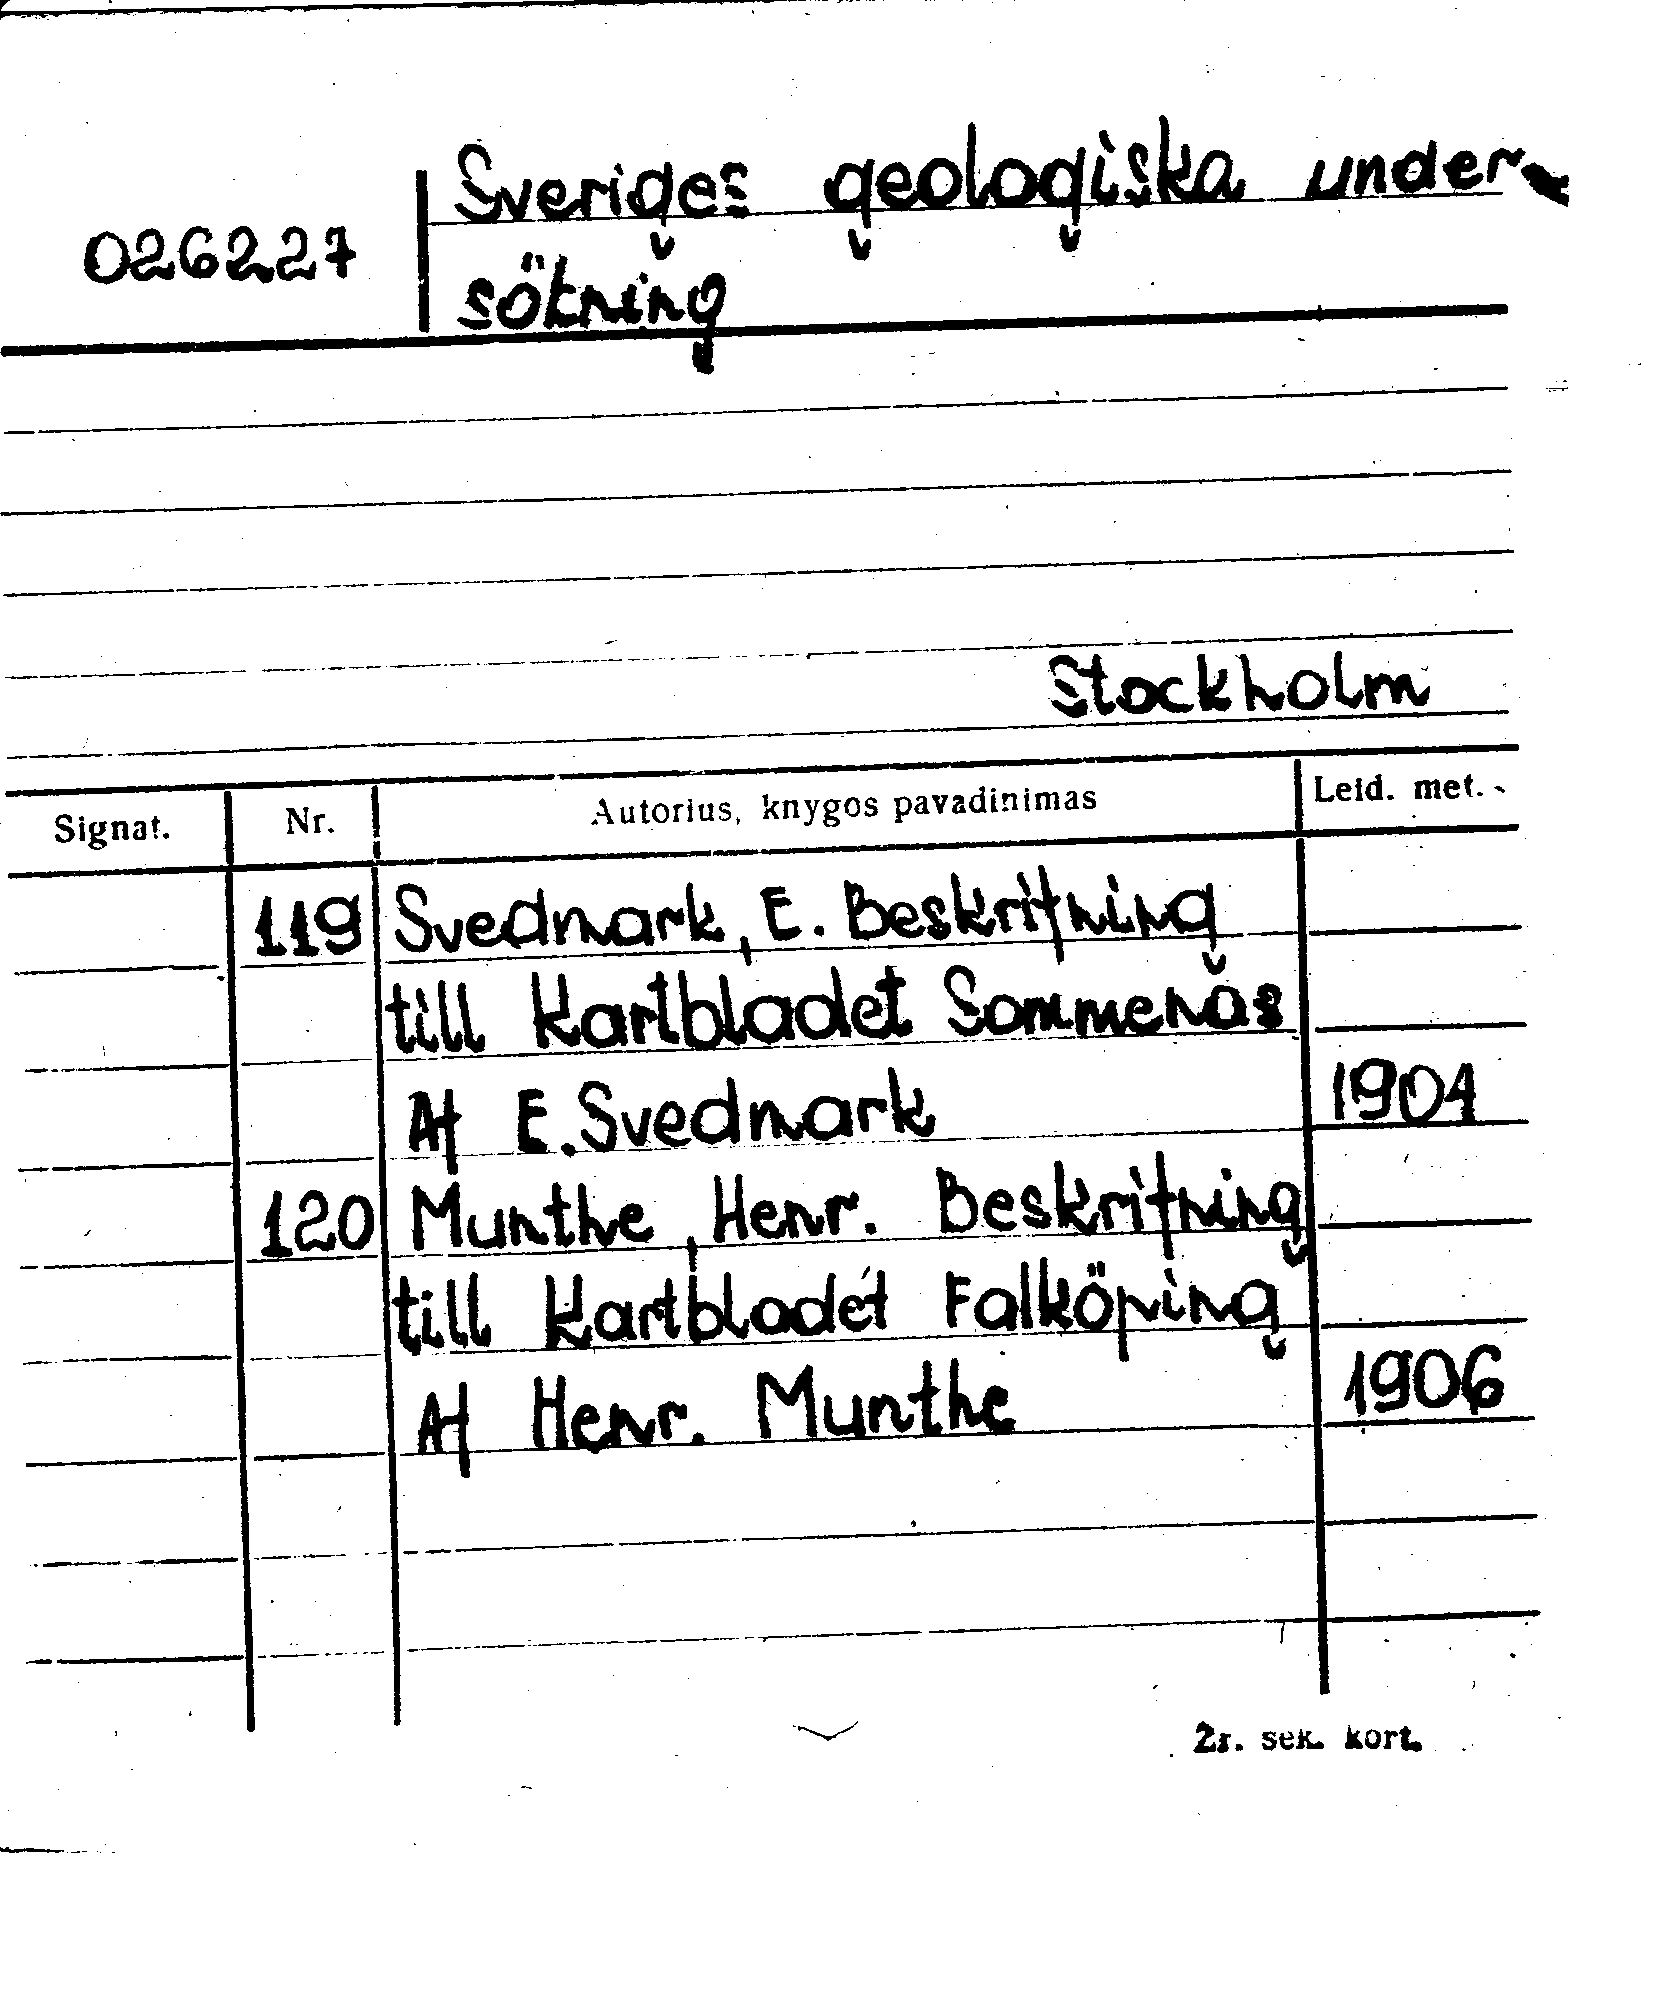 Sveriges geologiska under-
026227
sökning
Stockholm
Signat. Nr. Autorius, knygos pavadinimas Leid. met.
119 Svedmark, E. Beskrifning
till Kartbladet Sommenäs
Af E. Svedmark 1904
120 Munthe, Henr. Beskrifning
till Kartbladet Falköping
Af Henr. Munthe 1906
2r. sek. kort.